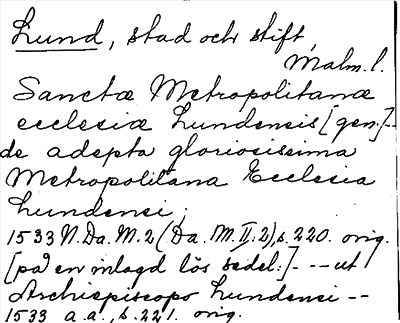 Lund, stad och stift,
Malm. l.
Sanctæ Metropolitanæ
ecclesiæ Lundensis [gen.]--
de adepta gloriosissima
Metropolitana Ecclesia
Lundensi;
1533 N. Da. M. 2 (Da. M. II: 2), s. 220. orig.
[på en inlagd lös sedel:]. --- ut
Archiepiscopo Lundensi --
1533 a.a., s. 221. orig.